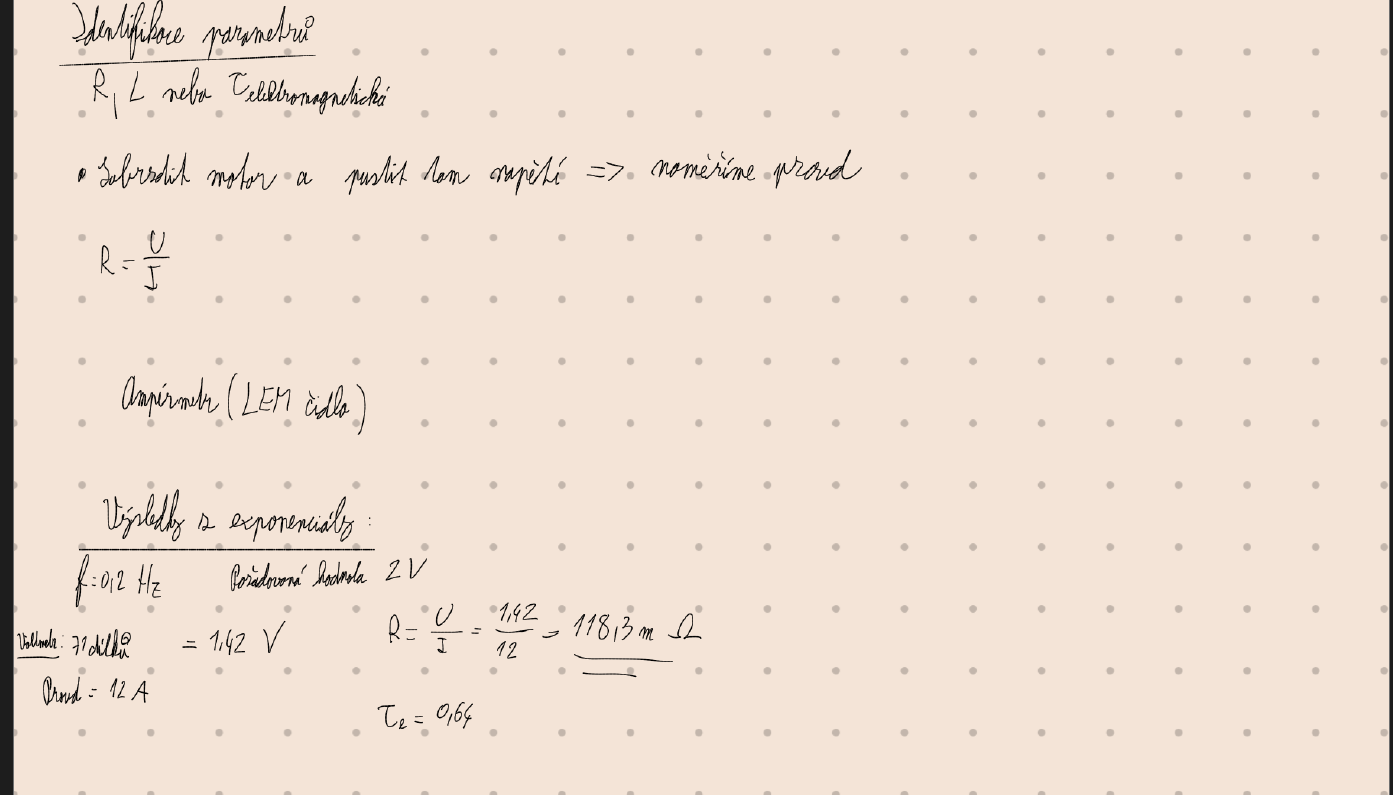 Identifikace parametrů
R, L nebo τelektromagnetická
• Zabrzdit motor a pustit tam napětí => naměříme proud
R = U/I
Ampérmetr (LEM čidla)
Výsledky z exponenciály:
f=0,2 Hz Požadovaná hodnota 2V
Voltmetr: 71 dílků = 1,42 V R = U/I = 1,42/12 = 118,3 m Ω
Proud = 12 A
τe = 0,64